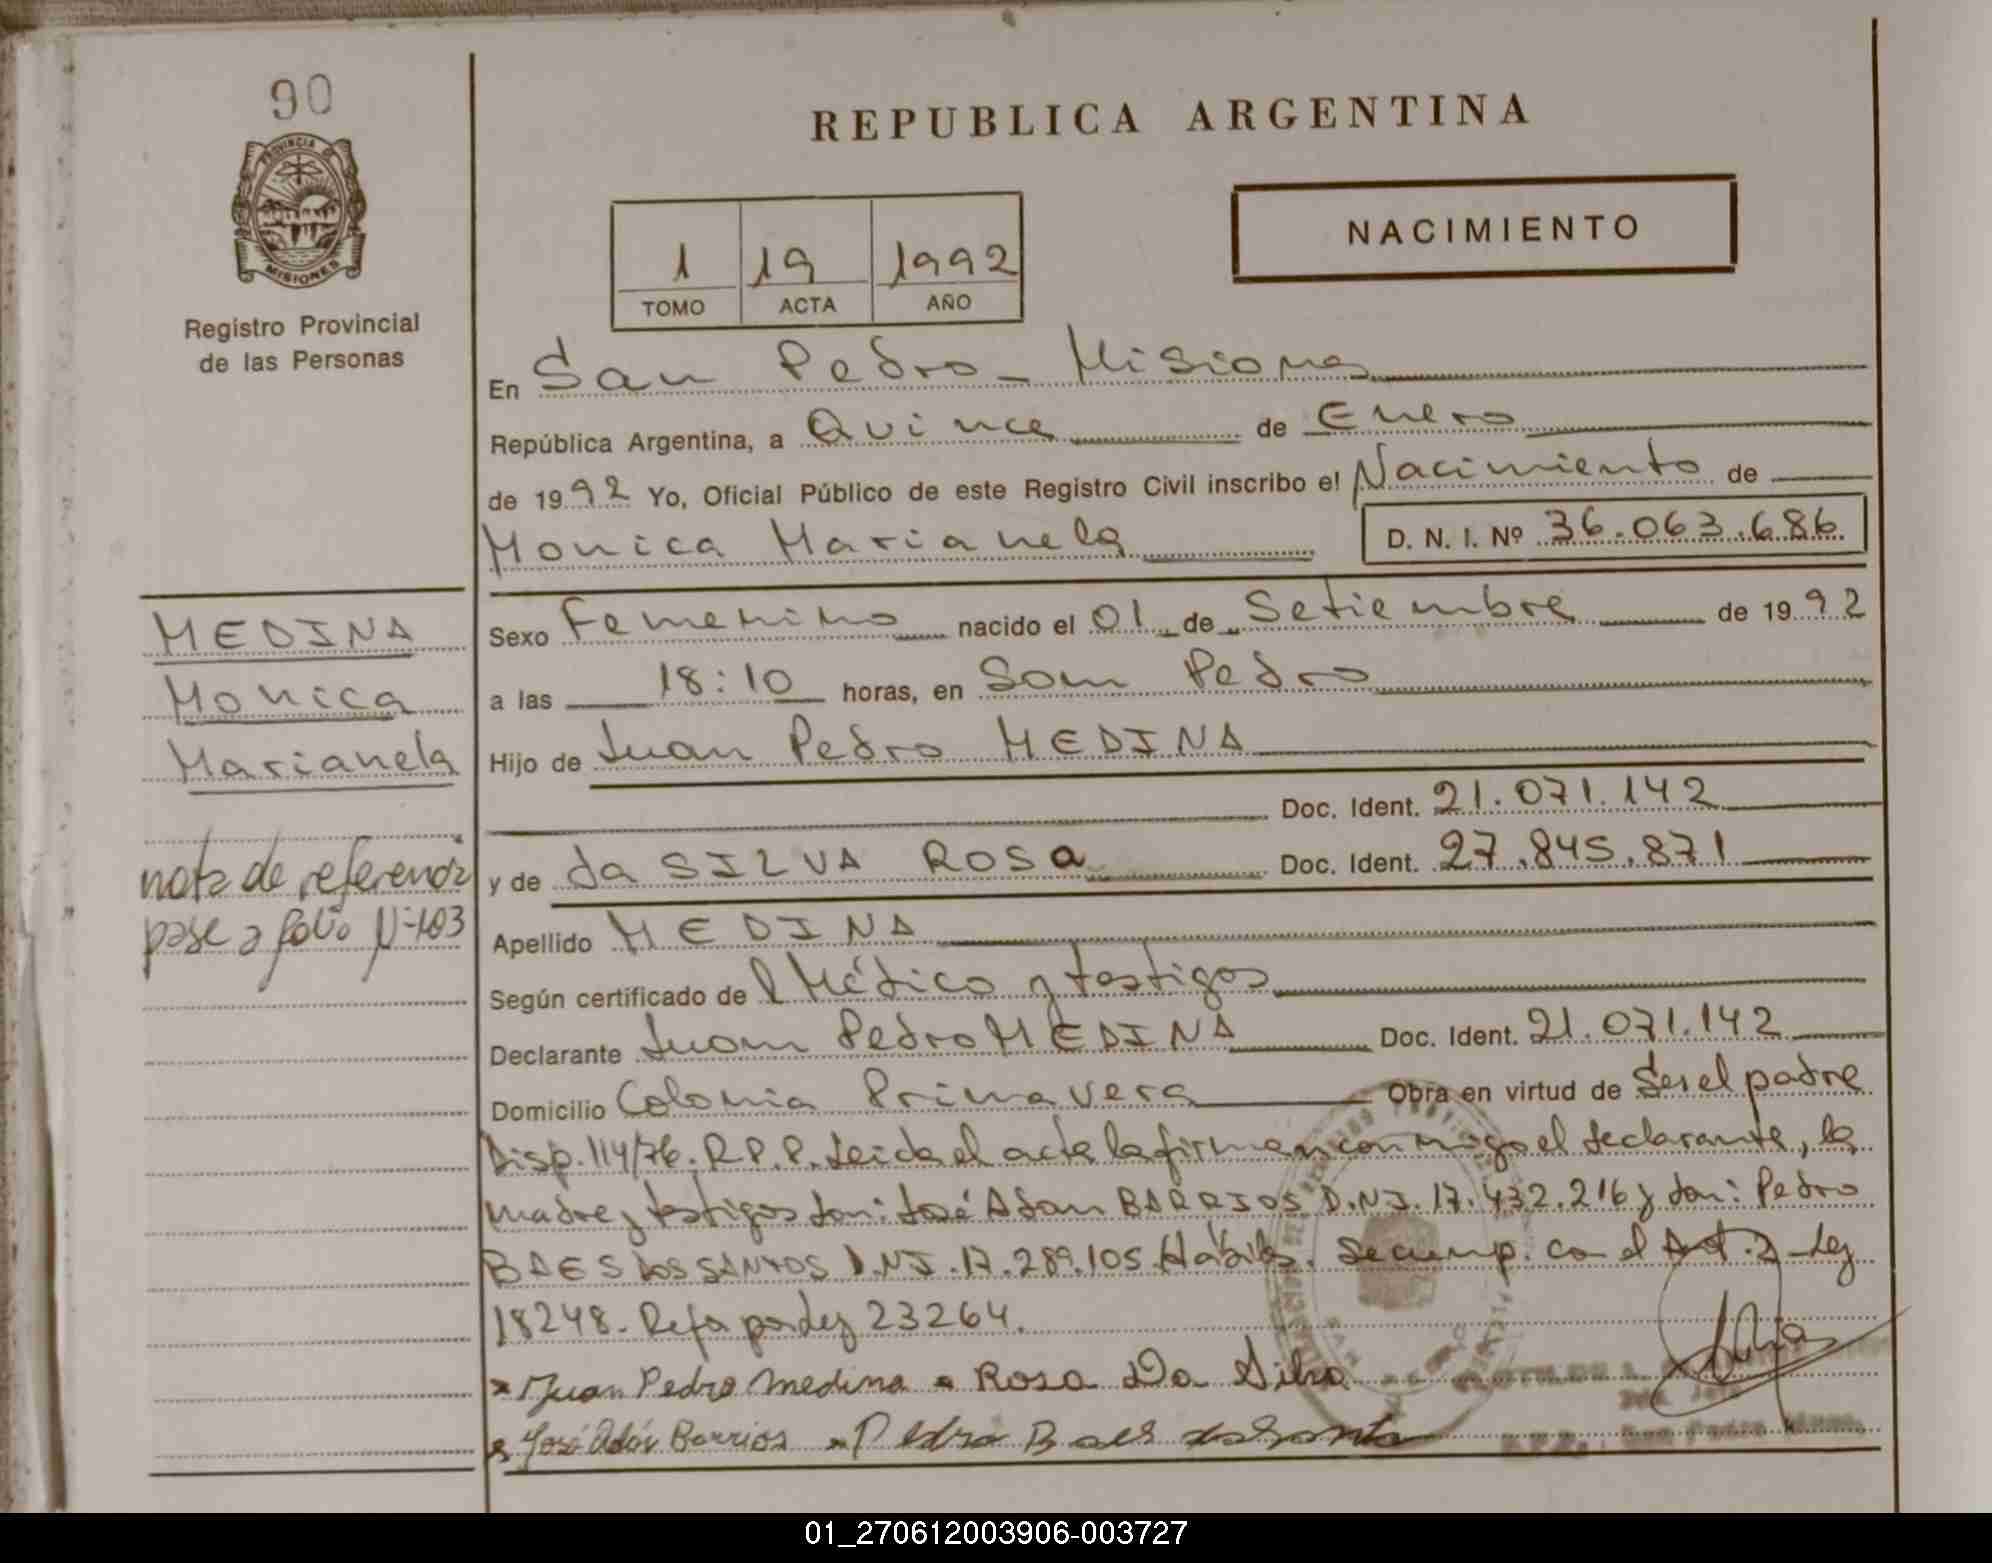 90
REPUBLICA ARGENTINA
PROVINCIA DE
MISIONES
NACIMIENTO
1 19 1992
TOMO ACTA AÑO
Registro Provincial
de las Personas
En San Pedro - Misiones
República Argentina, a Quince de Enero
de 1992 Yo, Oficial Público de este Registro Civil inscribo el Nacimiento de
Monica Marianela D. N. I. Nº 36.063.686
MEDINA
Monica
Marianela
nota de referencia
pase a folio Nº 103
Sexo Femenino nacido el 01 de Setiembre de 1992
a las 18:10 horas, en San Pedro
Hijo de Juan Pedro MEDINA
Doc. Ident. 21.071.142
y de da SILVA ROSA Doc. Ident. 27.845.871
Apellido MEDINA
Según certificado del Médico y testigos
Declarante Juan Pedro MEDINA Doc. Ident. 21.071.142
Domicilio Colonia Primavera Obra en virtud de Ser el padre
Disp. 114/76. R.P.P. Leida el acta la firman conmigo el declarante, la
madre y testigos don: José Adan BARRIOS D.N.I. 17.432.216 y don: Pedro
BAES DOS SANTOS D.N.I. 17.289.105 Hábiles. Se cump. con el Art. 2 - Ley
18248. Refo por Ley 23264.
Juan Pedro Medina Rosa Da Silva
José Adán Barrios Pedro Baes
San Pedro
01_270612003906-003727